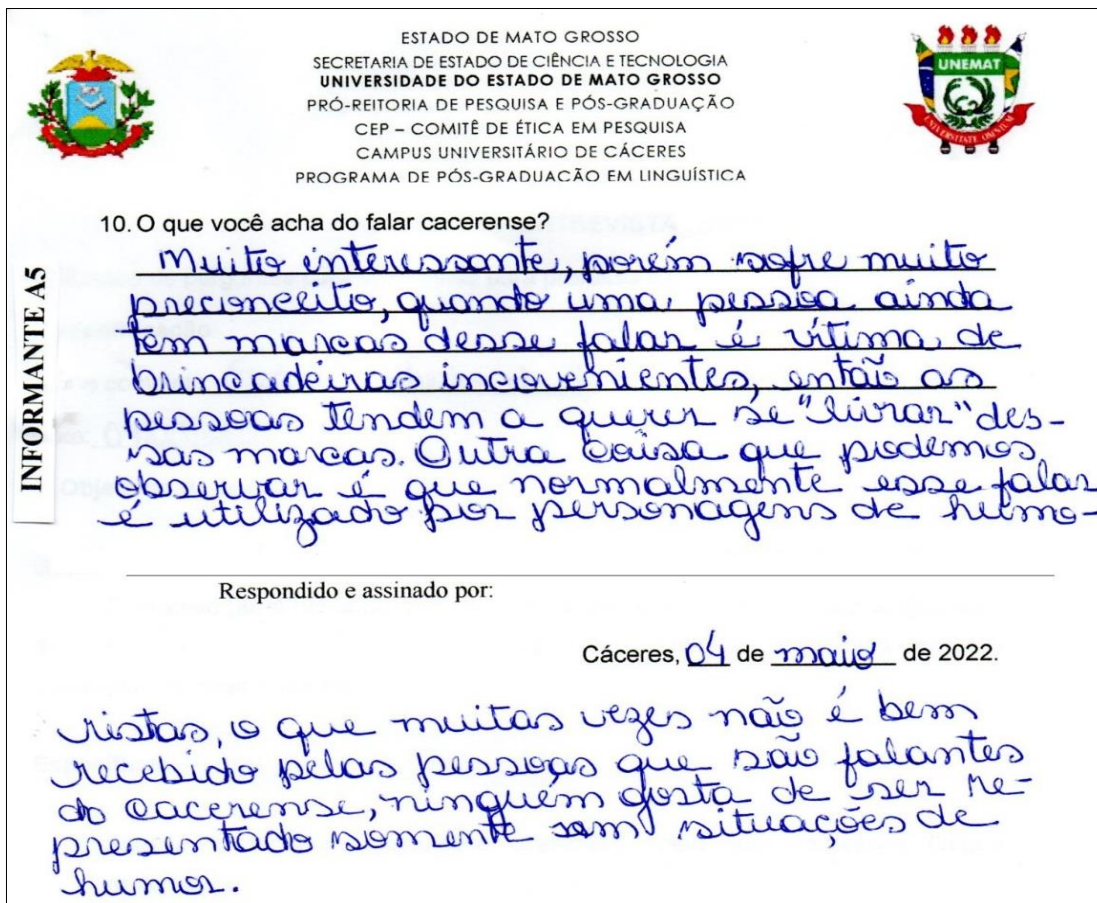 ESTADO DE MATO GROSSO
SECRETARIA DE ESTADO DE CIÊNCIA E TECNOLOGIA
UNIVERSIDADE DO ESTADO DE MATO GROSSO
PRÓ-REITORIA DE PESQUISA E PÓS-GRADUAÇÃO
CEP – COMITÊ DE ÉTICA EM PESQUISA
CAMPUS UNIVERSITÁRIO DE CÁCERES
PROGRAMA DE PÓS-GRADUACÃO EM LINGUÍSTICA
UNEMAT
UNIVERSITATE OMNIUM
INFORMANTE A5
10. O que você acha do falar cacerense?
Muito interessante, porém sofre muito
preconceito, quando uma pessoa ainda
tem marcas desse falar é vítima de
brincadeiras incovenientes, então as
pessoas tendem a querer se "livrar" des-
sas marcas. Outra coisa que podemos
observar é que normalmente esse falar
é utilizado por personagens de humo-
Respondido e assinado por:
Cáceres, 04 de maio de 2022.
ristas, o que muitas vezes não é bem
recebido pelas pessoas que são falantes
do cacerense, ninguém gosta de ser re-
presentado somente em situações de
humor.